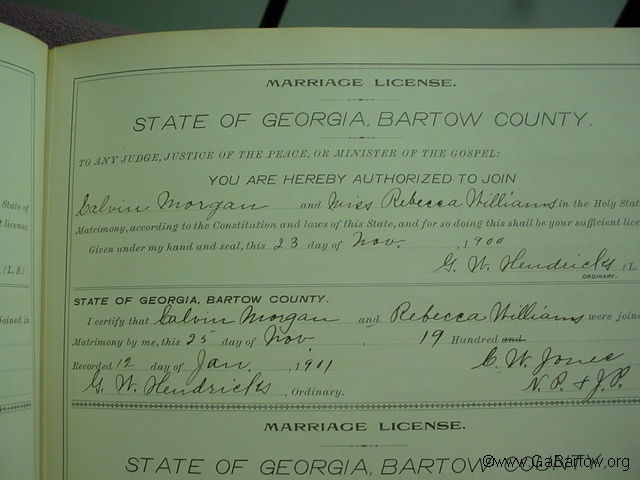 MARRIAGE LICENSE.
STATE OF GEORGIA, BARTOW COUNTY.
TO ANY JUDGE, JUSTICE OF THE PEACE, OR MINISTER OF THE GOSPEL:
YOU ARE HEREBY AUTHORIZED TO JOIN
Calvin Morgan and Miss Rebecca Williams in the Holy Stat
State of
Matrimony, according to the Constitution and laws of this State, and for so doing this shall be your sufficient lice
license.
Given under my hand and seal, this 23 day of Nov. , 1900
(L. S.)
G. W. Hendricks (L.
ORDINARY.
STATE OF GEORGIA, BARTOW COUNTY.
I certify that Calvin Morgan and Rebecca Williams were joine
joined in
Matrimony by me, this 25 day of Nov. , 19 Hundred and
Recorded 12 day of Jan. , 1901 C. W. Jones
G. W. Hendricks , Ordinary. N. P. & J. P.
MARRIAGE LICENSE.
STATE OF GEORGIA, BARTOW COUNTY.
©www.GaBartow.org